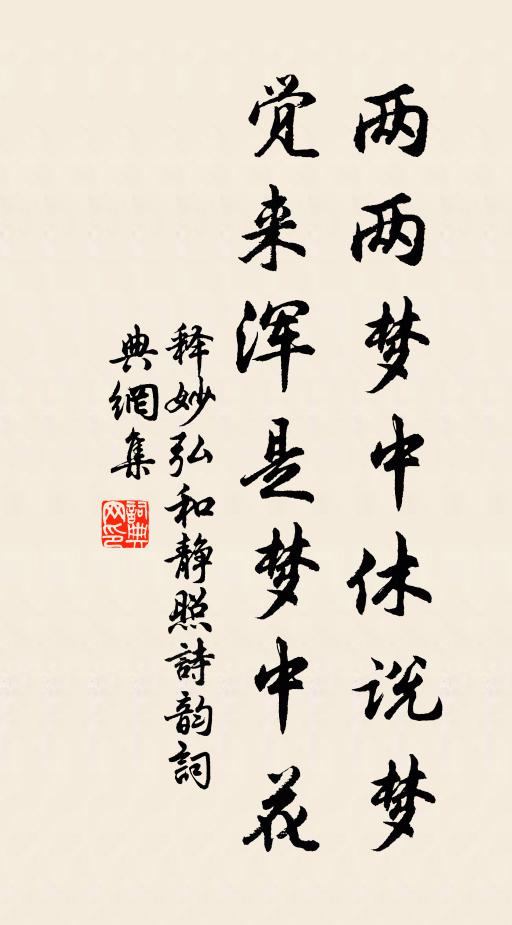 两两梦中休说梦
觉来浑是梦中花
释妙弘和静照詩韵詞
典網集
詞典
网印